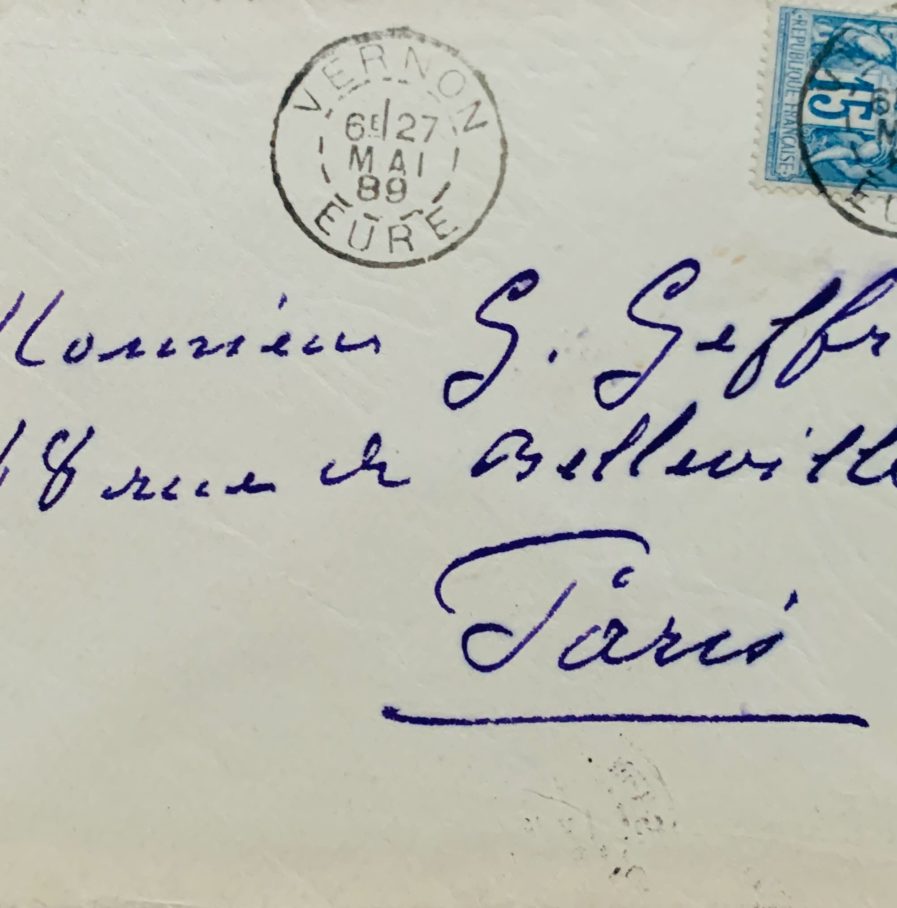 VERNON
6E/27
MAI
89
EURE
REPUBLIQUE FRANÇAISE
15
EU
Monsieur G. Geffr
48 rue de Belleville
Paris